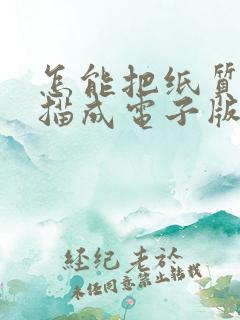 怎能把纸质
描成电子版
经纪老於
未任同意禁止转载